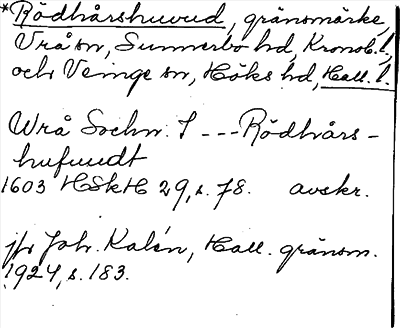 *Rödhårshuvud, gränsmärke,
Vrå sn, Sunnerbo hd, Kronob. l.,
och Veinge sn, Höks hd, Hall. l.
Wrå Sochn: I --- Rödhårs-
hufuudt
1603 HSkH 29, s. 78. avskr.
jfr Joh. Kalén, Hall. gränsm.
1924, s. 183.